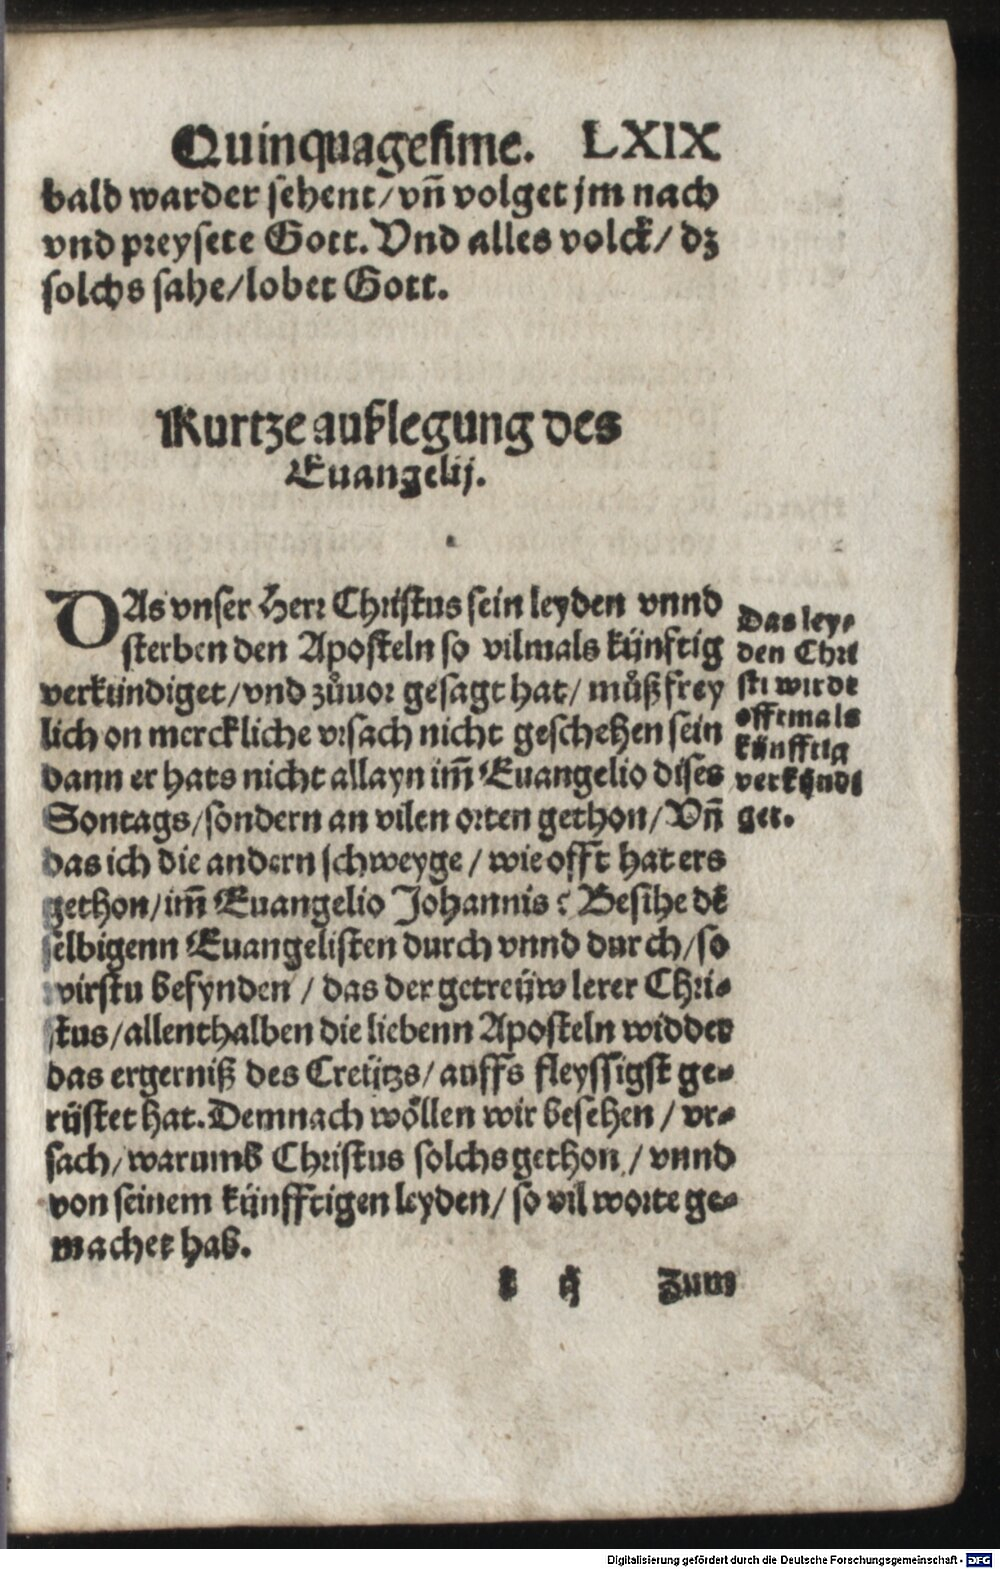 Quinquagesime. LXIX
bald warder sehent/vñ volget jm nach
vnd preysete Gott. Vnd alles volck/ dz
solchs sahe/lobet Gott.
Kurtze außlegung des
Euangelij.
DAs vnser Herr Christus sein leyden vnnd
sterben den Aposteln so vilmals künftig
verkündiget/vnd zůuor gesagt hat/ můß frey
lich on merckliche vrsach nicht geschehen sein
dann er hats nicht allayn im̃ Euangelio dises
Sontags/sondern an vilen orten gethon/ Vñ
das ich die andern schweyge / wie offt hat ers
gethon/im̃ Euangelio Johannis? Besihe dē
selbigenn Euangelisten durch vnnd durch/so
wirstu befynden / das der getreüw lerer Chri-
stus/allenthalben die liebenn Aposteln widder
das ergerniß des Creützs/ auffs fleyssigst ge-
rüstet hat. Demnach wöllen wir besehen / vr-
sach/warumb Christus solchs gethon / vnnd
von seinem künfftigen leyden/ so vil worte ge-
machet hab.
Das ley-
den Chri
sti wirdt
offtmals
künfftig
verkündi
get.
ij Zum
Digitalisierung gefördert durch die Deutsche Forschungsgemeinschaft - DFG